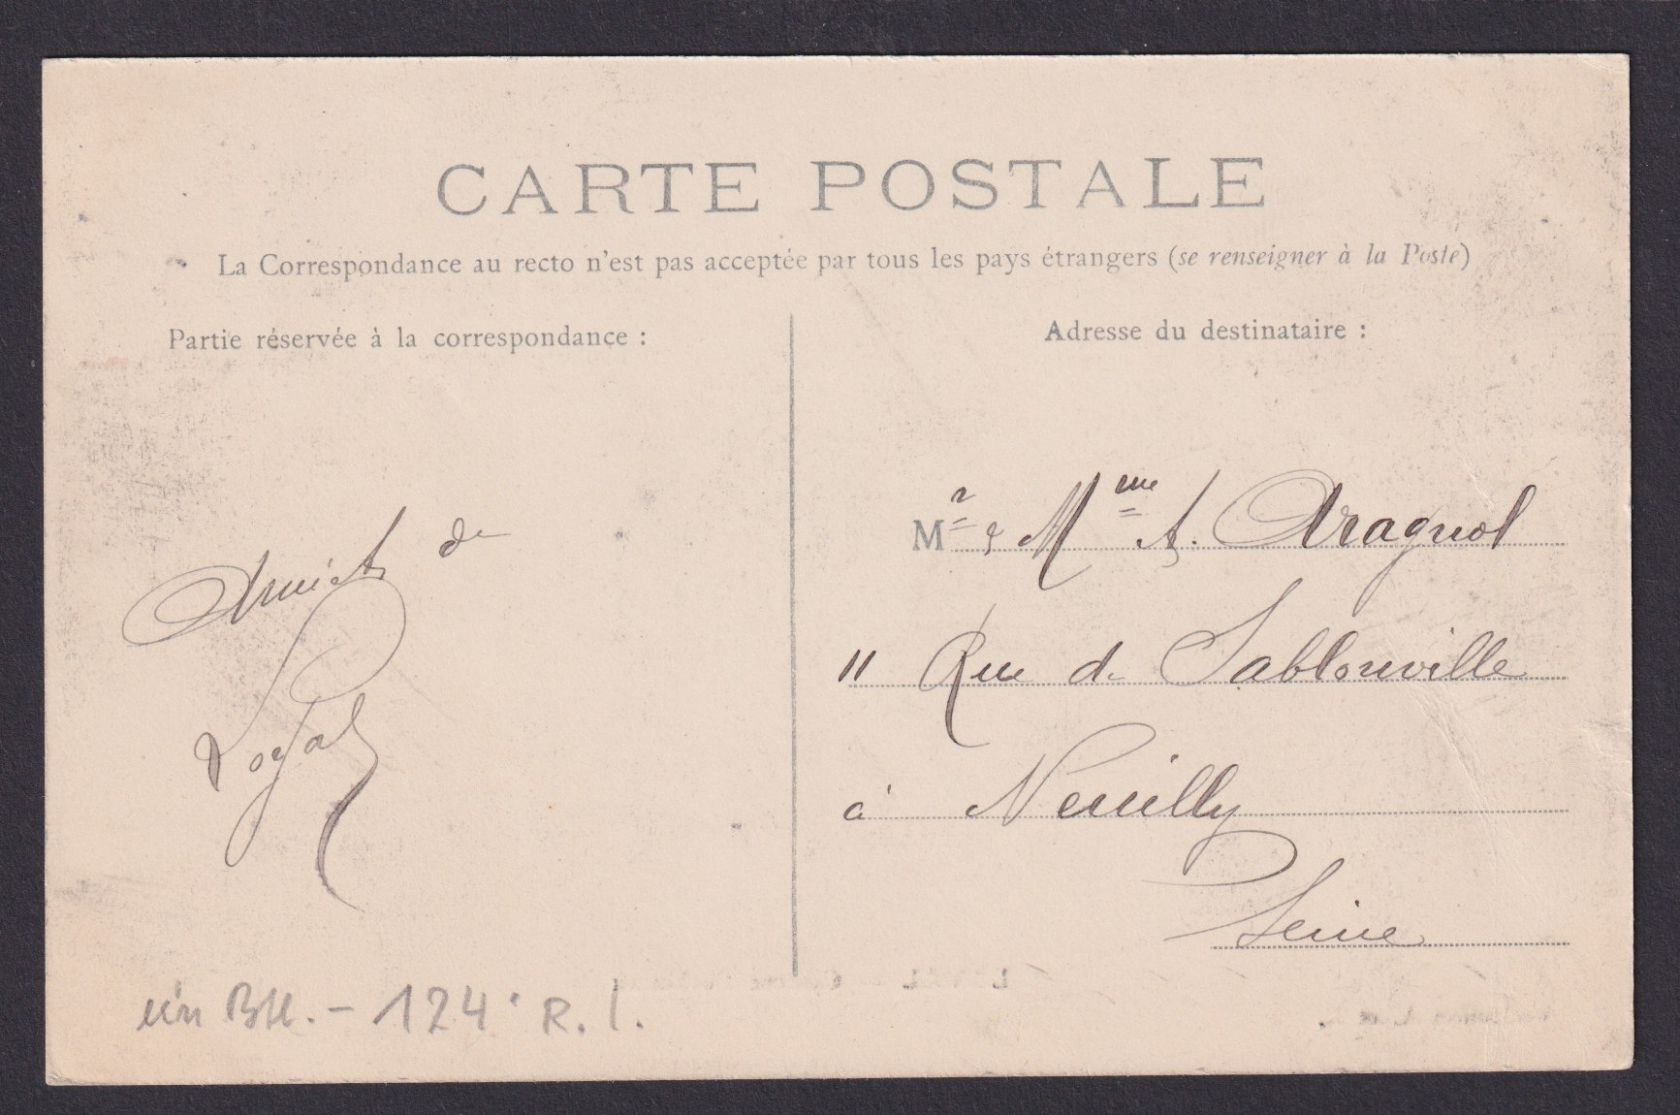 CARTE POSTALE
La Correspondance au recto n'est pas acceptée par tous les pays étrangers (se renseigner à la Poste)
Partie réservée à la correspondance :
Amict de
Loyal
Adresse du destinataire :
Mr & Mme A. Aragnol
11 Rue de Sablonville
à Neuilly
Seine
124e R. I.